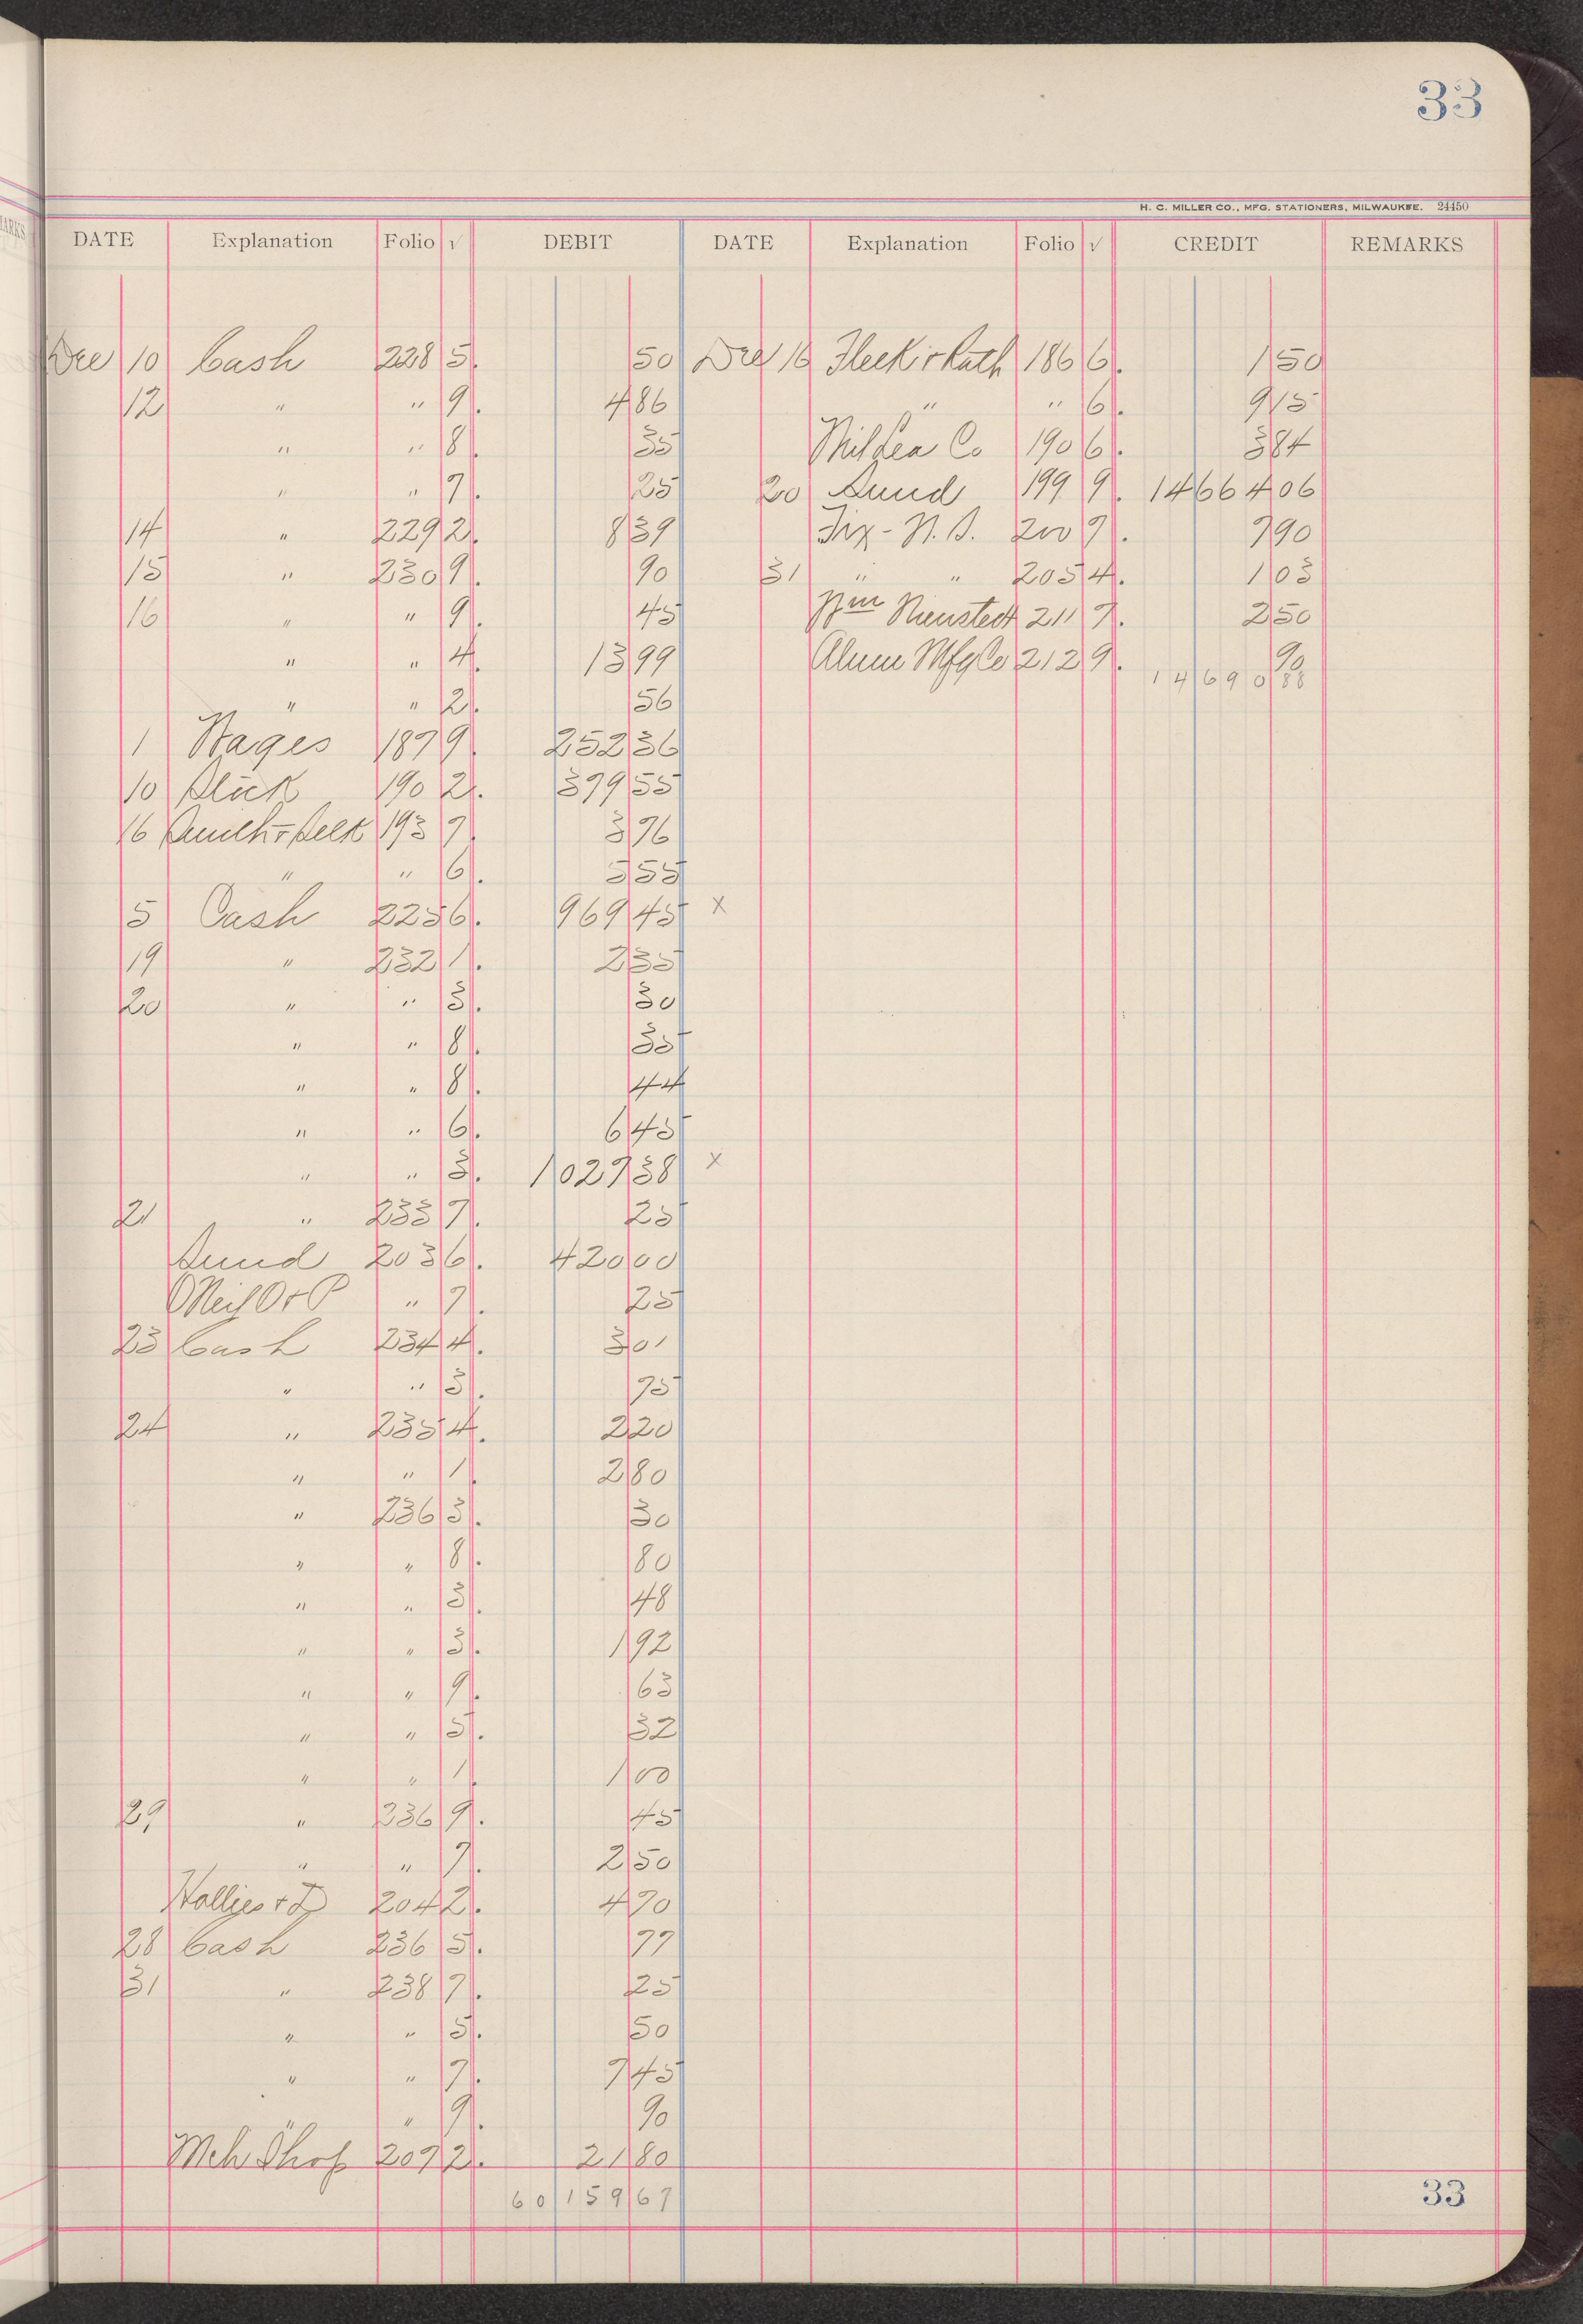 33
H. C. MILLER CO., MFG. STATIONERS, MILWAUKEE. 24450
DATE Explanation Folio √ DEBIT DATE Explanation Folio √ CREDIT REMARKS
Dec 10 Cash 228 5. 50 Dec 16 Fleck & Rath 186 6. 1 50
12 " " 9. 4 86 " " 6. 9 15
" " 8. 35 Mil Lea Co 190 6. 3 84
" " 7. 25 20 Sund 199 9. 14664 06
14 " 229 2. 8 39 Fix - N. S. 200 7. 7 90
15 " 230 9. 90 31 " " 205 4. 1 03
16 " " 9. 45 Wm Nienstedt 211 7. 2 50
" " 4. 13 99 Alum Mfg Co 212 9. 90
14690 88
" " 2. 56
1 Wages 187 9. 252 36
10 Slick 190 2. 379 55
16 193 7. 3 76
" " 6. 5 55
5 Cash 225 6. 969 45 x
19 " 232 1. 2 35
20 " " 3. 30
" " 8. 35
" " 8. 44
" " 6. 6 45
" " 3. 1027 38 x
21 " 233 7. 25
Sund 203 6. 420 00
ONeil O & P " 7. 25
23 Cash 234 4. 3 01
" " 3. 75
24 " 235 4. 2 20
" " 1. 2 80
" 236 3. 30
" " 8. 80
" " 3. 48
" " 3. 1 92
" " 9. 63
" " 5. 32
" " 1. 1 00
29 " 236 9. 45
" " 7. 2 50
204 2. 4 70
28 Cash 236 5. 77
31 " 238 7. 25
" " 5. 50
" " 7. 7 45
" " 9. 90
Mch Shop 207 2. 21 80
60159 67
33